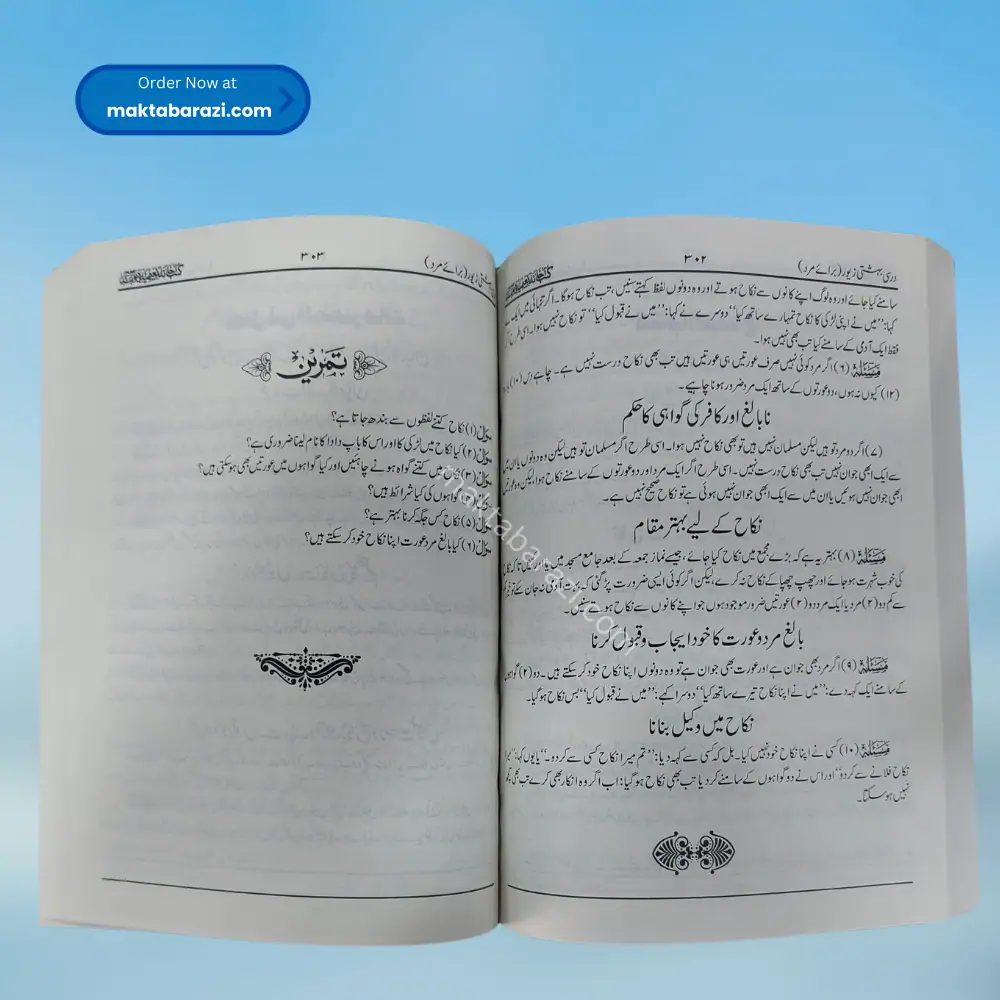 Order Now at
maktabarazi.com
درسی بہشتی زیور (برائے مرد)
۳۰۲
سامنے کیا جائے اور وہ لوگ اپنے کانوں سے نکاح ہوتے اور وہ دونوں لفظ کہتے سنیں، تب نکاح ہوگا۔ اگر تنہائی میں ایک
کہا: ”میں نے اپنی لڑکی کا نکاح تمہارے ساتھ کیا“ دوسرے نے کہا: ”میں نے قبول کیا“ تو نکاح نہیں ہوا۔ اسی طرح اگر
فقط ایک آدمی کے سامنے کیا تب بھی نہیں ہوا۔
مسئلہ (۶) اگر مرد کوئی نہیں صرف عورتیں ہی عورتیں ہیں تب بھی نکاح درست نہیں ہے۔ چاہے دس (۱۰)
(۱۲) کیوں نہ ہوں، دو عورتوں کے ساتھ ایک مرد ضرور ہونا چاہیے۔
نابالغ اور کافر کی گواہی کا حکم
(۷) اگر دو مرد تو ہیں لیکن مسلمان نہیں ہیں تو بھی نکاح نہیں ہوا۔ اسی طرح اگر مسلمان تو ہیں لیکن وہ دونوں یا ان میں
سے ایک ابھی جوان نہیں تب بھی نکاح درست نہیں۔ اسی طرح اگر ایک مرد اور دو عورتوں کے سامنے نکاح ہوا لیکن وہ عورتیں
ابھی جوان نہیں ہوئیں یا ان میں سے ایک ابھی جوان نہیں ہوئی ہے تو نکاح صحیح نہیں ہے۔
نکاح کے لیے بہتر مقام
مسئلہ (۸) بہتر یہ ہے کہ بڑے مجمع میں نکاح کیا جائے، جیسے نماز جمعہ کے بعد جامع مسجد میں یا اور کہیں تاکہ نکاح
کی خوب شہرت ہو جائے اور چھپ چھپا کے نکاح نہ کرے، لیکن اگر کوئی ایسی ضرورت پڑ گئی کہ بہت آدمی نہ جان سکے تو خیر
سے کم دو (۲) مرد یا ایک مرد دو (۲) عورتیں ضرور موجود ہوں جو اپنے کانوں سے نکاح ہوتے سنیں۔
بالغ مرد و عورت کا خود ایجاب و قبول کرنا
مسئلہ (۹) اگر مرد بھی جوان ہے اور عورت بھی جوان ہے تو وہ دونوں اپنا نکاح خود کر سکتے ہیں۔ دو (۲) گواہوں
کے سامنے ایک کہہ دے: ”میں نے اپنا نکاح تیرے ساتھ کیا“ دوسرا کہے: ”میں نے قبول کیا“ بس نکاح ہو گیا۔
نکاح میں وکیل بنانا
مسئلہ (۱۰) کسی نے اپنا نکاح خود نہیں کیا۔ بل کہ کسی سے کہہ دیا: ”تم میرا نکاح کسی سے کر دو۔“ یا یوں کہا: ”میرا
نکاح فلانے سے کر دو“ اور اس نے دو گواہوں کے سامنے کر دیا تب بھی نکاح ہو گیا: اب اگر وہ انکار بھی کرے تب بھی کچھ
نہیں ہو سکتا۔
بہشتی زیور (برائے مرد)
۳۰۳
تمرین
سوال (۱) نکاح کتنے لفظوں سے بندھ جاتا ہے؟
سوال (۲) کیا نکاح میں لڑکی کا اور اس کا باپ دادا کا نام لینا ضروری ہے؟
سوال (۳) نکاح میں کتنے گواہ ہونے چاہئیں اور کیا گواہوں میں عورتیں بھی ہو سکتی ہیں؟
گواہوں کی کیا شرائط ہیں؟
سوال (۵) نکاح کس جگہ کرنا بہتر ہے؟
سوال (۶) کیا بالغ مرد عورت اپنا نکاح خود کر سکتے ہیں؟
maktabarazi.com